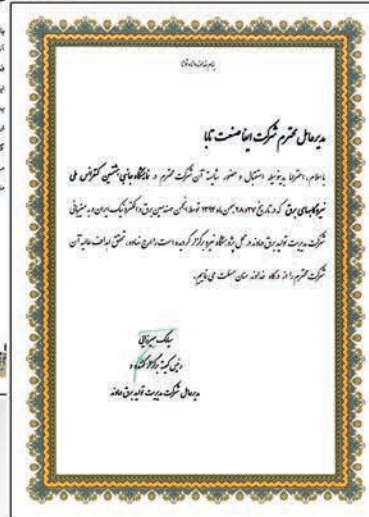 بنام خداوند توانا
مدیرعامل محترم شرکت ایفا صنعت تابا
با سلام، احتراما بدینوسیله استقبال و حضور شایسته آن شرکت محترم در نمایشگاه جانبی هشتمین کنفرانس ملی
نیروگاههای برق که در تاریخ ۲۷ و ۲۸ بهمن ماه ۱۳۹۴ توسط انجمن مهندسین برق و الکترونیک ایران و به میزبانی
شرکت مدیریت تولید برق دماوند در محل پژوهشگاه نیرو برگزار گردیده است را ارج نهاده، تحقق اهداف عالیه آن
شرکت محترم را از درگاه خداوند منان مسئلت می نماییم.
رئیس کمیته برگزار کننده و
مدیرعامل شرکت مدیریت تولید برق دماوند